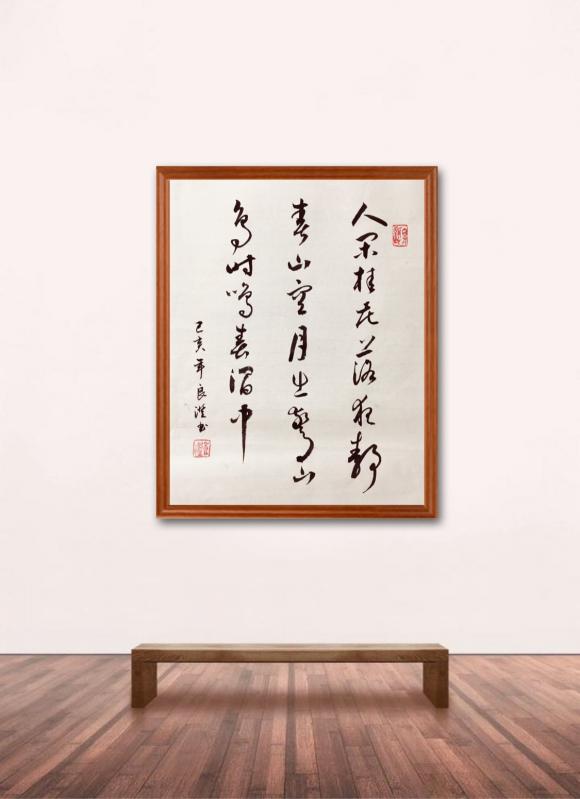 人闲桂花落夜静
春山空月出惊山
鸟时鸣春涧中
己亥年良书